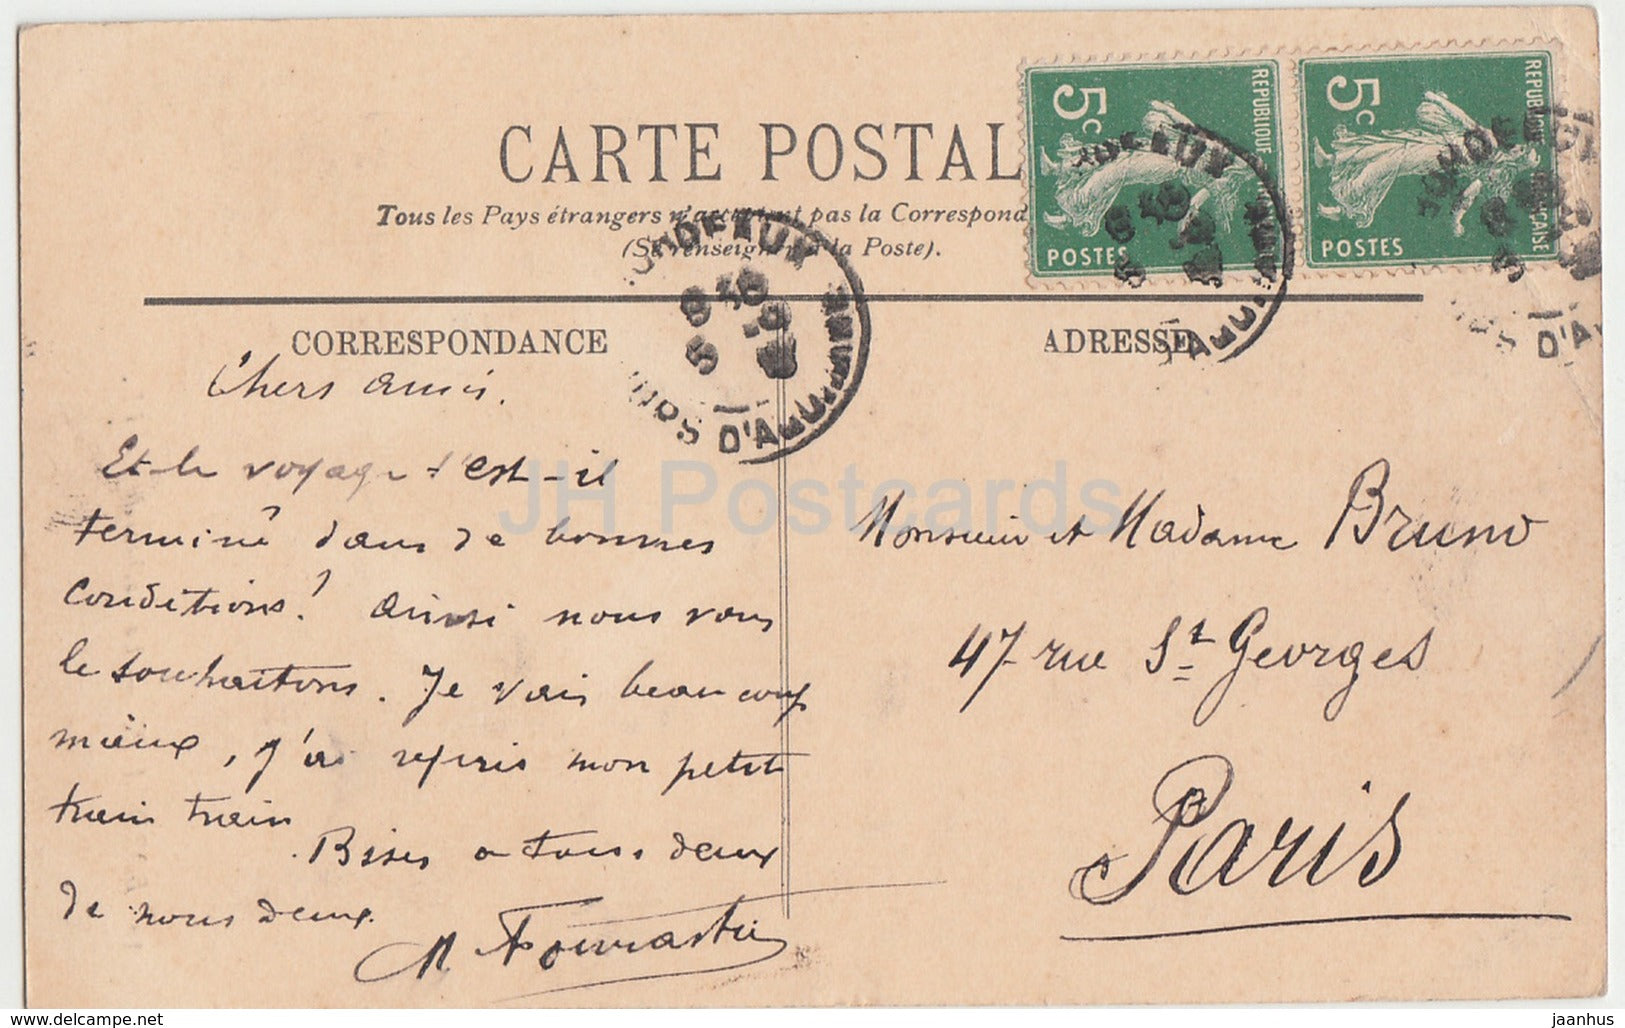 CARTE POSTALE
Tous les Pays étrangers n'acceptent pas la Correspond
(Se renseigner à la Poste).
5c
REPUBLIQUE FRANÇAISE
POSTES
5c
REPUBLIQUE FRANÇAISE
POSTES
BORDEAUX
COURS D'A
BORDEAUX
D'A
BORDEAUX
COURS D'A
CORRESPONDANCE
Chers amis.
Et le voyage s'est-il
terminé dans de bonnes
conditions? ainsi nous vous
le souhaitons. Je vais beaucoup
mieux, j'ai repris mon petit
train train
Bises a tous deux
de nous deux.
M
ADRESSE
Monsieur et Madame Bruno
47 rue St Georges
Paris
JH Postcards
delcampe.net
jaanhus